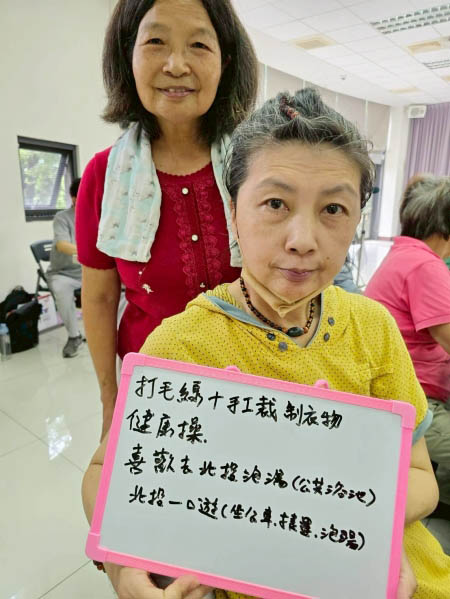 打毛線＋手工裁制衣物
健康操.
喜歡去北投泡湯(公共浴池)
北投一日遊(坐公車.接運.泡湯)